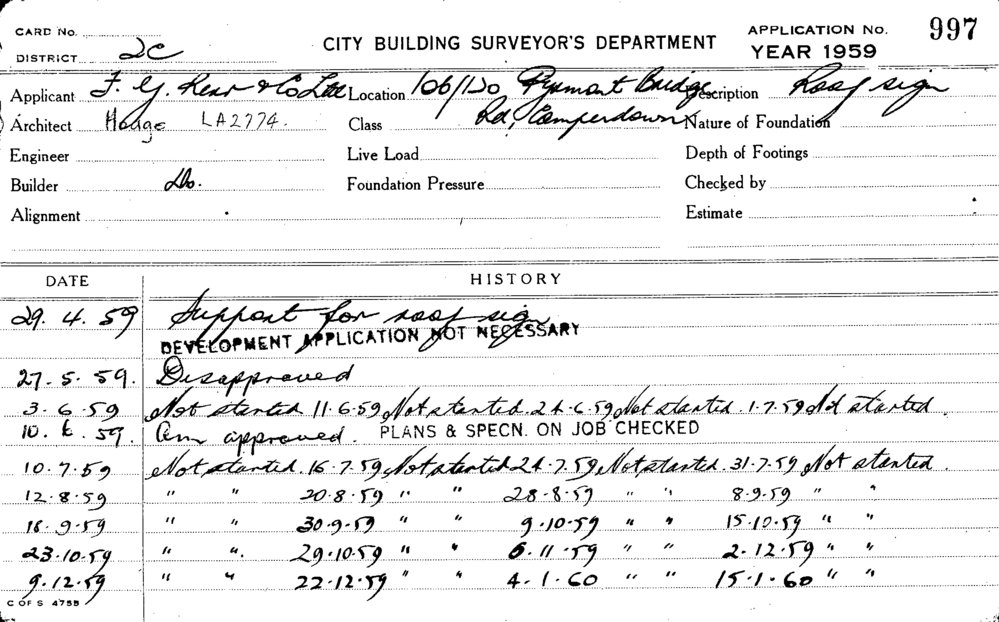 CARD No.
DISTRICT 2C
CITY BUILDING SURVEYOR'S DEPARTMENT
APPLICATION No. 997
YEAR 1959
Applicant F. G. Kerr & Co Ltd Location 106/120 Pyrmont Bridge Description Roof sign
Architect Hodge LA2774. Class Rd, Camperdown Nature of Foundation
Engineer Live Load Depth of Footings
Builder Do. Foundation Pressure Checked by
Alignment Estimate
DATE HISTORY
29. 4. 59 Support for roof sign
DEVELOPMENT APPLICATION NOT NECESSARY
27. 5. 59. Disapproved
3. 6. 59 Not started 11.6.59 Not started. 24.6.59 Not started. 1.7.59 Not started.
10. 6. 59. Am approved. PLANS & SPECN. ON JOB CHECKED
10.7.59 Not started. 16.7.59 Not started 24.7.59 Not started. 31.7.59 Not started.
12.8.59 " " 20.8.59 " " 28.8.59 " " 8.9.59 " "
18.9.59 " " 30.9.59 " " 9.10.59 " " 15.10.59 " "
23.10.59 " ". 29.10.59 " " 6.11.59 " " 2.12.59 " "
9.12.59 " " 22.12.59 " " 4.1.60 " " 15.1.60 " "
C OF S 4755